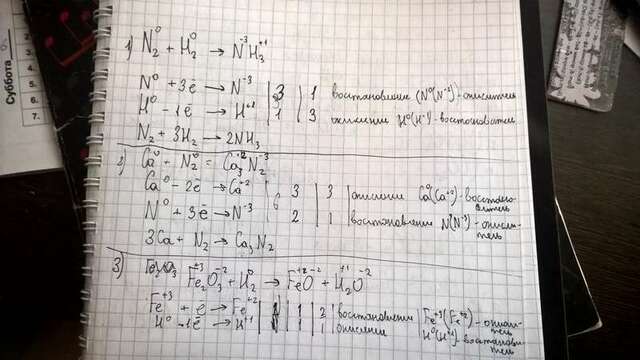 Суббота
1) N₂⁰ + H₂⁰ → N⁻³H₃⁺¹
N⁰ + 3ē → N⁻³ | 3 | 1 | восстановление (N⁰(N⁻³)-окислитель
H⁰ - 1ē → H⁺¹ | 1 | 3 | окисление H⁰(H⁺¹)-восстановитель
N₂ + 3H₂ → 2NH₃
2) Ca⁰ + N₂⁰ = Ca₃⁺²N₂⁻³
Ca⁰ - 2ē → Ca⁺² | 6 | 3 | 3 | окисление Ca⁰(Ca⁺²)-восстано-
витель
N⁰ + 3ē → N⁻³ | 2 | 1 | восстановление N⁰(N⁻³)-окисли-
тель
3Ca + N₂ → Ca₃N₂
3) Fe₂O₃ Fe₂⁺³O₃⁻² + H₂⁰ → Fe⁺²O⁻² + H₂⁺¹O⁻²
Fe⁺³ + ē → Fe⁺² | 1 | 1 | 2 | восстановление Fe⁺³(Fe⁺²)-окисли-
тель
H⁰ - 1ē → H⁺¹ | 1 | 1 | окисление H⁰(H⁺¹)-восстанови-
тель